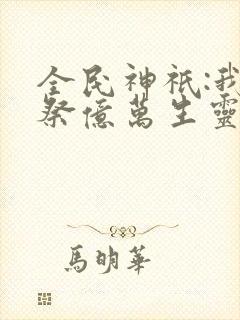 全民神祇:我
祭億萬生靈
馬明華